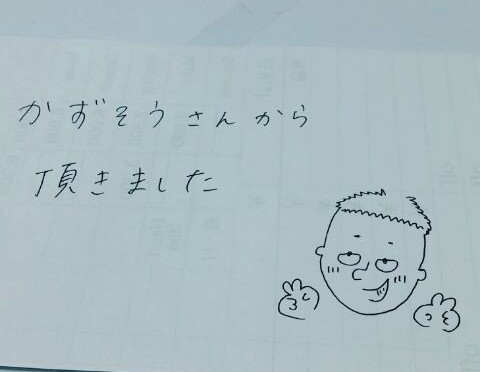 かずそうさんから
頂きました